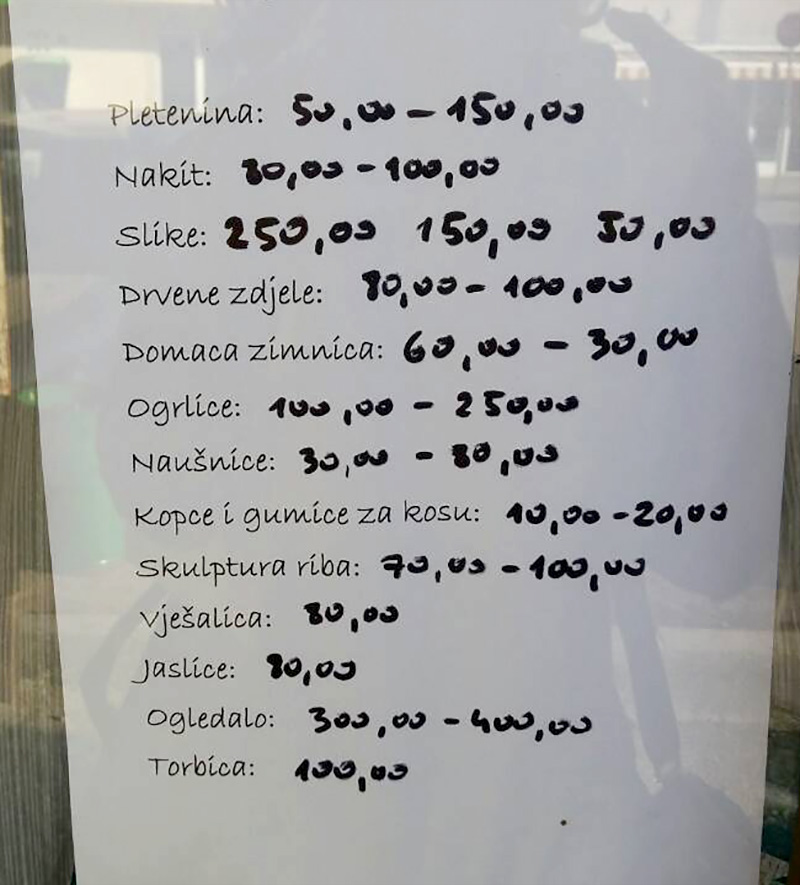 Pletenina: 50,00 - 150,00
Nakit: 80,00 - 100,00
Slike: 250,00 150,00 50,00
Drvene zdjele: 80,00 - 100,00
Domaca zimnica: 60,00 - 30,00
Ogrlice: 100,00 - 250,00
Naušnice: 30,00 - 80,00
Kopce i gumice za kosu: 10,00 - 20,00
Skulptura riba: 70,00 - 100,00
Vješalica: 80,00
Jaslice: 80,00
Ogledalo: 300,00 - 400,00
Torbica: 100,00